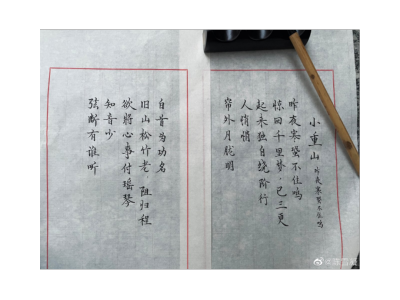 小重山 昨夜寒蛩不住鸣
昨夜寒蛩不住鸣
惊回千里梦，已三更
起来独自绕阶行
人悄悄
帘外月胧明
白首为功名
旧山松竹老 阻归程
欲将心事付瑶琴
知音少
弦断有谁听